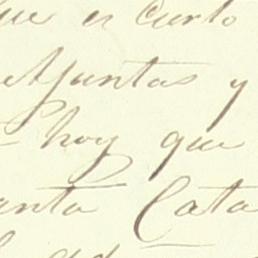 que es cierto
Ajuntas y
hoy que
anta Cata